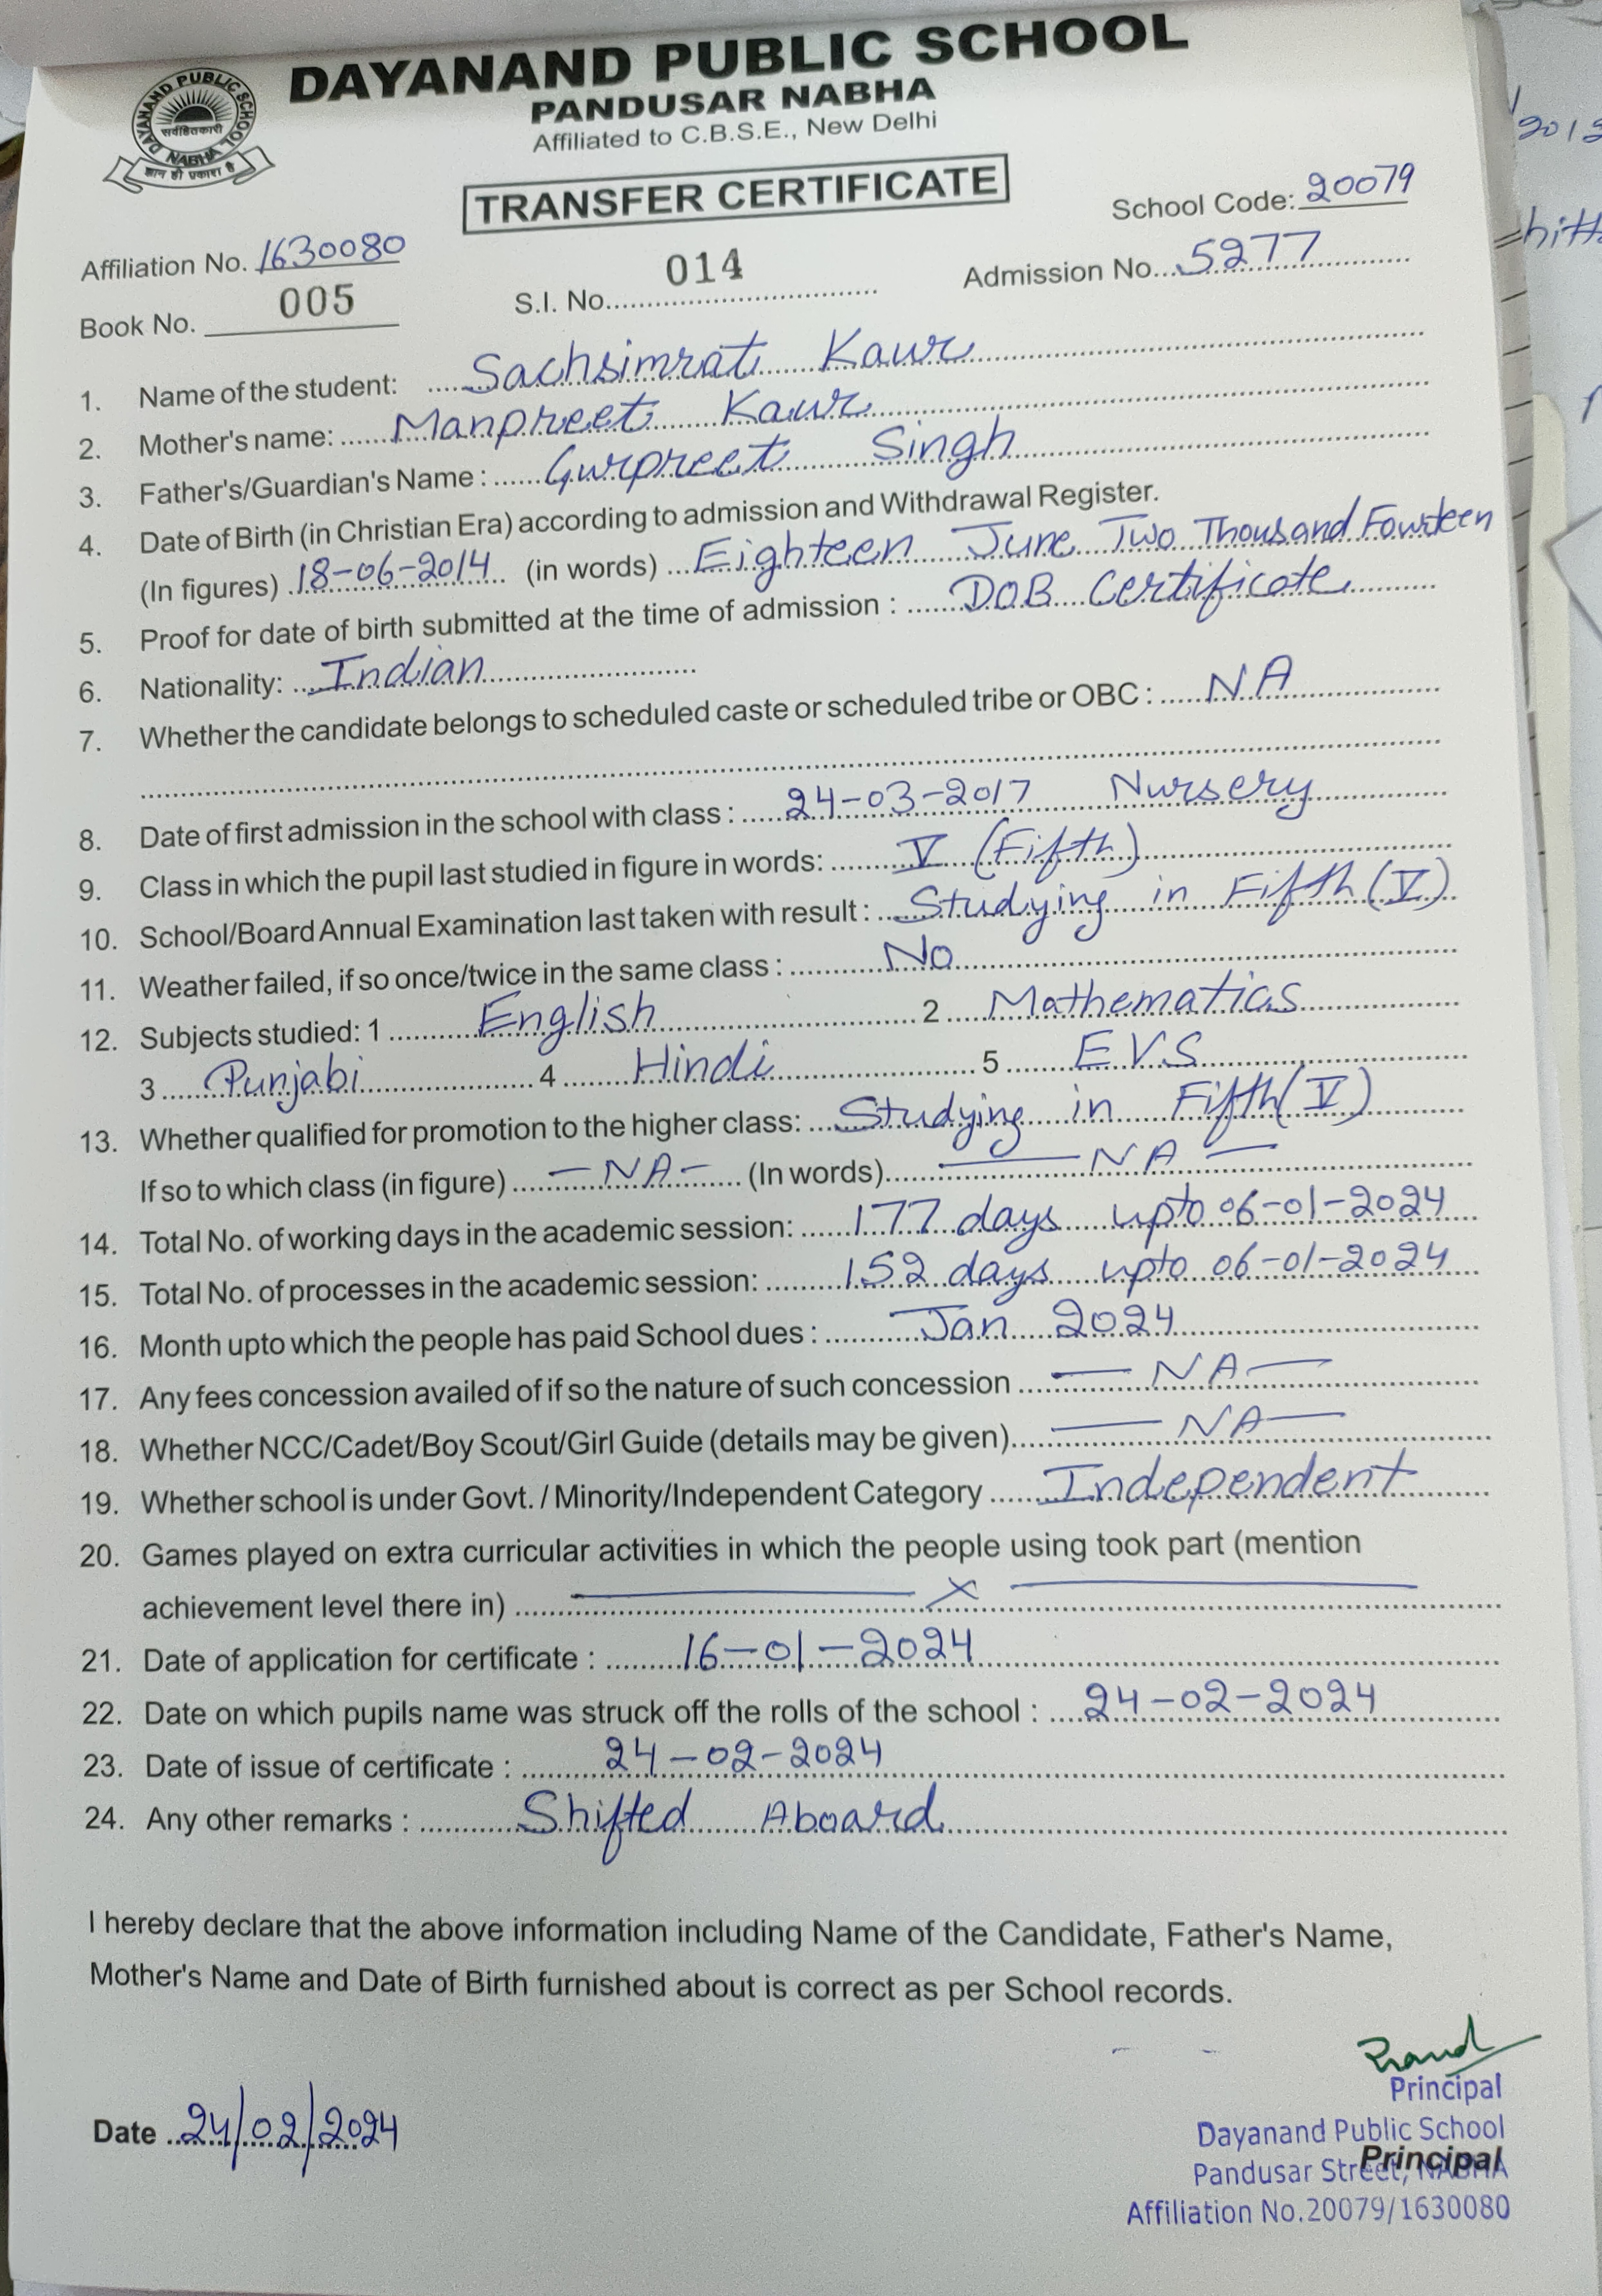 DAYANAND PUBLIC SCHOOL
PANDUSAR NABHA
Affiliated to C.B.S.E., New Delhi
DAYANAND PUBLIC SCHOOL
सर्वहितकारी
NABHA
ज्ञान ही प्रकाश है
TRANSFER CERTIFICATE
School Code: 20079
Affiliation No. 1630080
Book No. 005
S.I. No. 014
Admission No. 5277
1. Name of the student: Sachsimrat Kaur
2. Mother's name: Manpreet Kaur
3. Father's/Guardian's Name : Gurpreet Singh
4. Date of Birth (in Christian Era) according to admission and Withdrawal Register.
(In figures) 18-06-2014 (in words) Eighteen June Two Thousand Fourteen
5. Proof for date of birth submitted at the time of admission : DOB Certificate
6. Nationality: Indian
7. Whether the candidate belongs to scheduled caste or scheduled tribe or OBC : NA
8. Date of first admission in the school with class : 24-03-2017 Nursery
9. Class in which the pupil last studied in figure in words: V (Fifth)
10. School/Board Annual Examination last taken with result : Studying in Fifth (V)
11. Weather failed, if so once/twice in the same class : No
12. Subjects studied: 1 English 2 Mathematics
3 Punjabi 4 Hindi 5 E.V.S
13. Whether qualified for promotion to the higher class: Studying in Fifth (V)
If so to which class (in figure) —NA— (In words) — NA —
14. Total No. of working days in the academic session: 177 days upto 06-01-2024
15. Total No. of processes in the academic session: 152 days upto 06-01-2024
16. Month upto which the people has paid School dues : Jan 2024
17. Any fees concession availed of if so the nature of such concession — NA —
18. Whether NCC/Cadet/Boy Scout/Girl Guide (details may be given) — NA —
19. Whether school is under Govt. / Minority/Independent Category Independent
20. Games played on extra curricular activities in which the people using took part (mention
achievement level there in) — X —
21. Date of application for certificate : 16-01-2024
22. Date on which pupils name was struck off the rolls of the school : 24-02-2024
23. Date of issue of certificate : 24-02-2024
24. Any other remarks : Shifted Aboard
I hereby declare that the above information including Name of the Candidate, Father's Name,
Mother's Name and Date of Birth furnished about is correct as per School records.
Principal
Dayanand Public School
Pandusar Street, NABHA
Principal
Affiliation No.20079/1630080
Date 24/02/2024